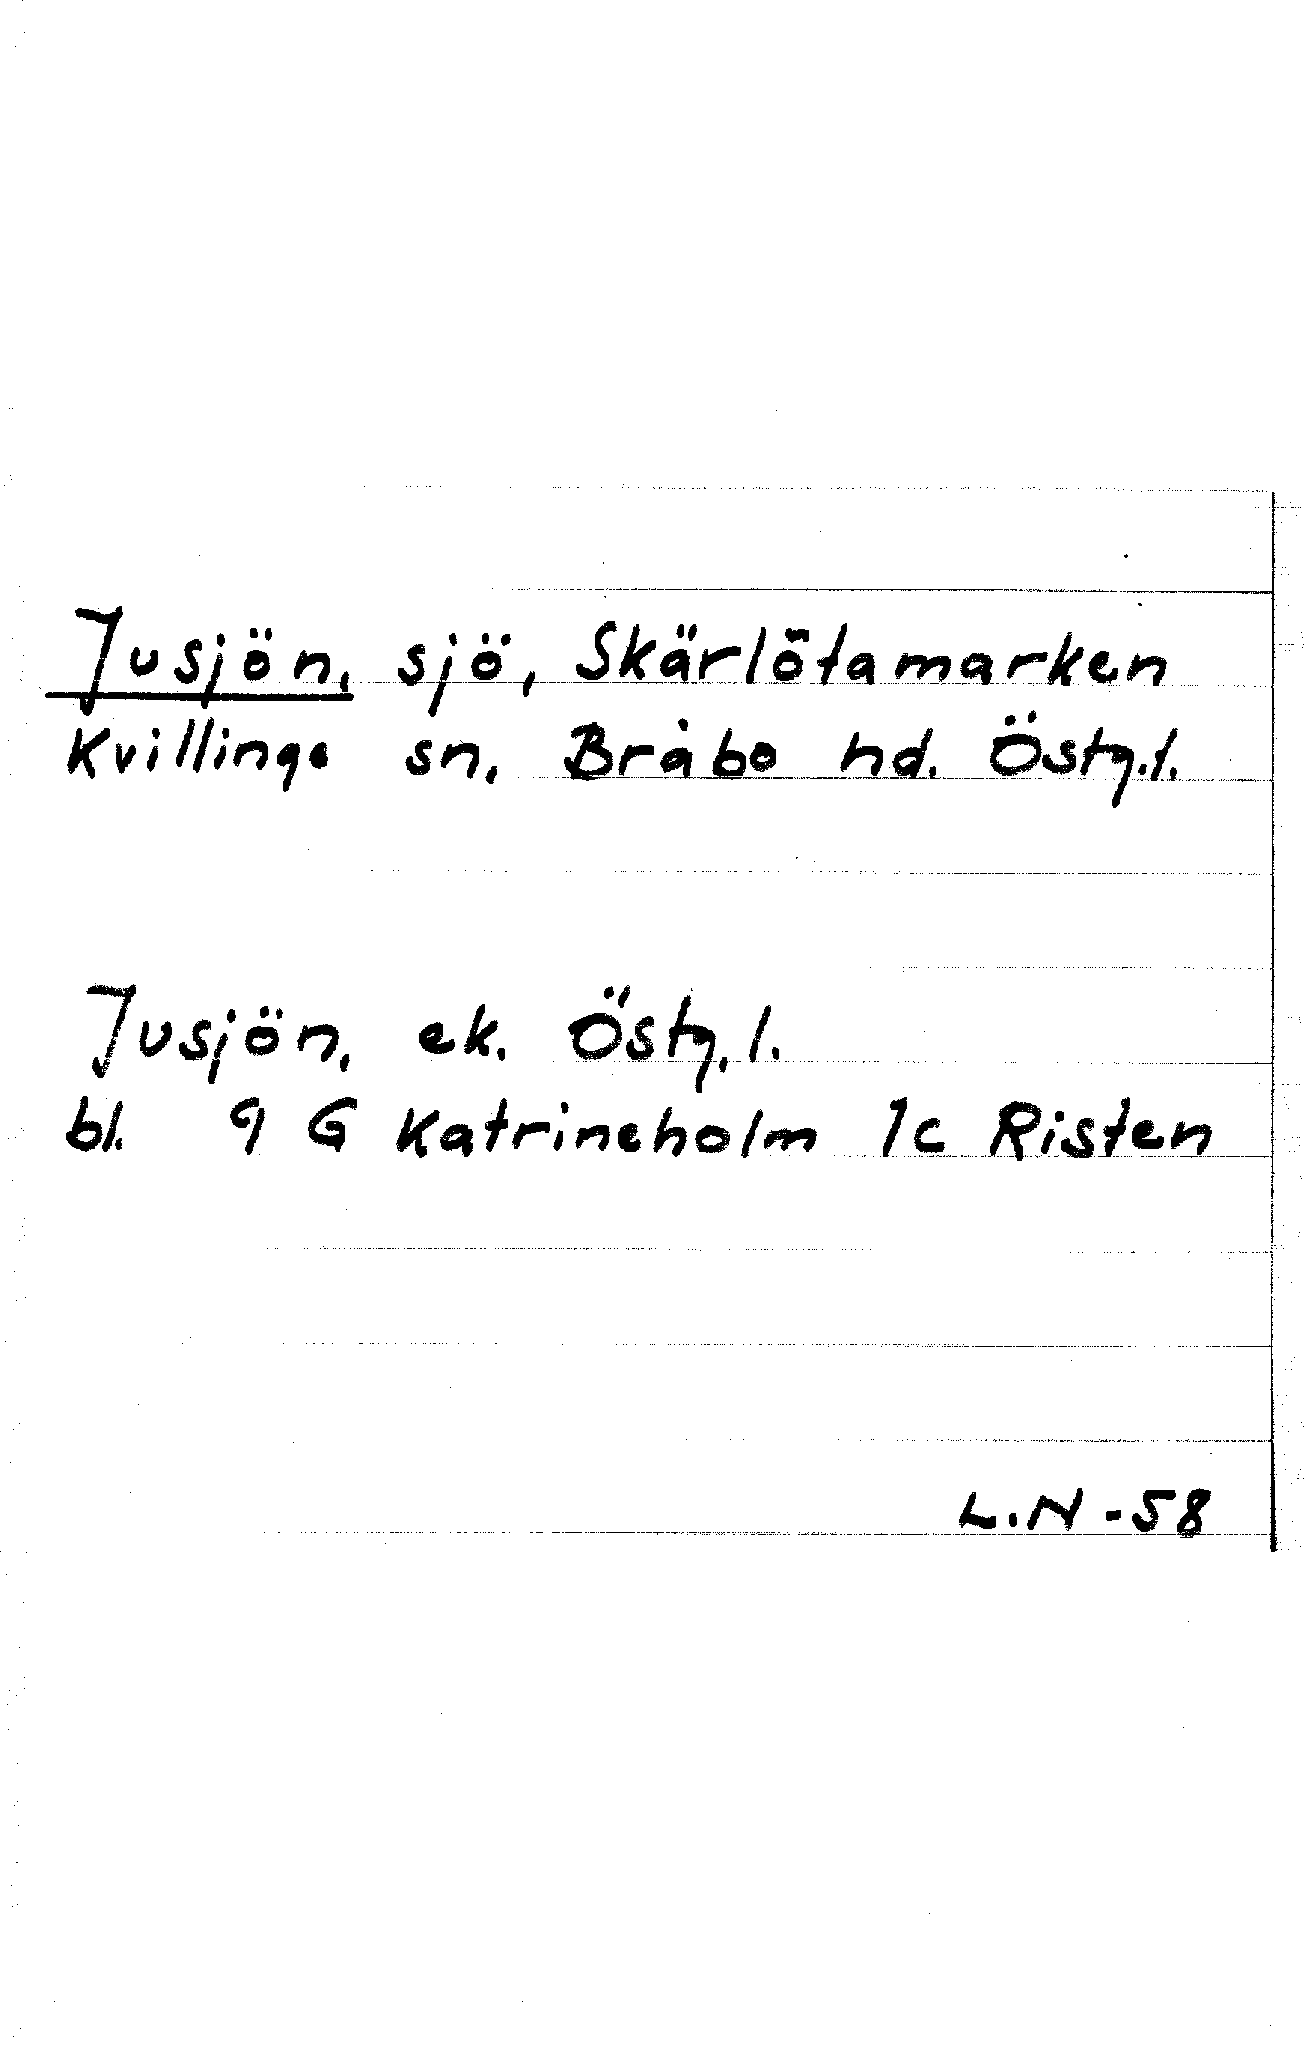 Jusjön, sjö, Skärlötamarken
Kvillinge sn. Bråbo hd. Östg.l.
Jusjön, ek. Östg.l.
bl. 9 G Katrineholm 1c Risten
L.N-58